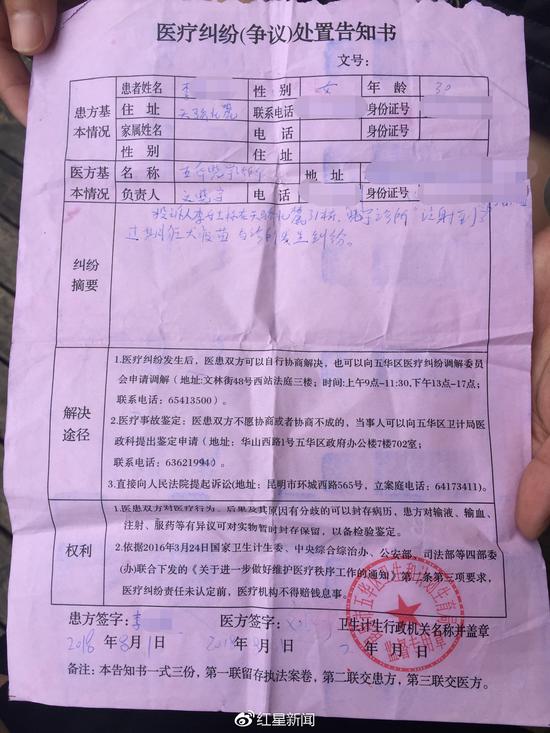 医疗纠纷(争议)处置告知书
文号:
患方基本情况 患者姓名 李 性别 女 年龄 30
住址 联系电话 身份证号
家属姓名 电话 身份证号
性别 住址
医方基本情况 名称 五华 诊所 地址
负责人 电话
纠纷摘要 投诉人李 诊所 注射 过期狂犬疫苗与诊所发生纠纷。
解决途径
1.医疗纠纷发生后,医患双方可以自行协商解决,也可以向五华区医疗纠纷调解委员
会申请调解(地址:文林街48号西站法庭三楼;时间:上午9点-11:30,下午13点-17点;
联系电话:65413500)。
2.医疗事故鉴定;医患双方不愿协商或者协商不成的,当事人可以向五华区卫计局医
政科提出鉴定申请(地址:华山西路1号五华区政府办公楼7楼702室;
联系电话:63621994)。
3.直接向人民法院提起诉讼(地址:昆明市环城西路565号,立案庭电话:64173411)。
权利
1.医患双方对医疗行为、后果及其原因有分歧的可以封存病历,患方对输液、输血、
注射、服药等有异议可对实物暂时封存保留,以备检验鉴定。
2.依据2016年3月24日国家卫生计生委、中央综合综治办、公安部、司法部等四部委
(办)联合下发的《关于进一步做好维护医疗秩序工作的通知》第二条第三项要求,
医疗纠纷责任未认定前,医疗机构不得赔钱息事。
患方签字:李 医方签字: 卫生计生行政机关名称并盖章
2018年8月1日 2018年 月1日 年 月 日
备注:本告知书一式三份,第一联留存执法案卷,第二联交患方,第三联交医方。
红星新闻